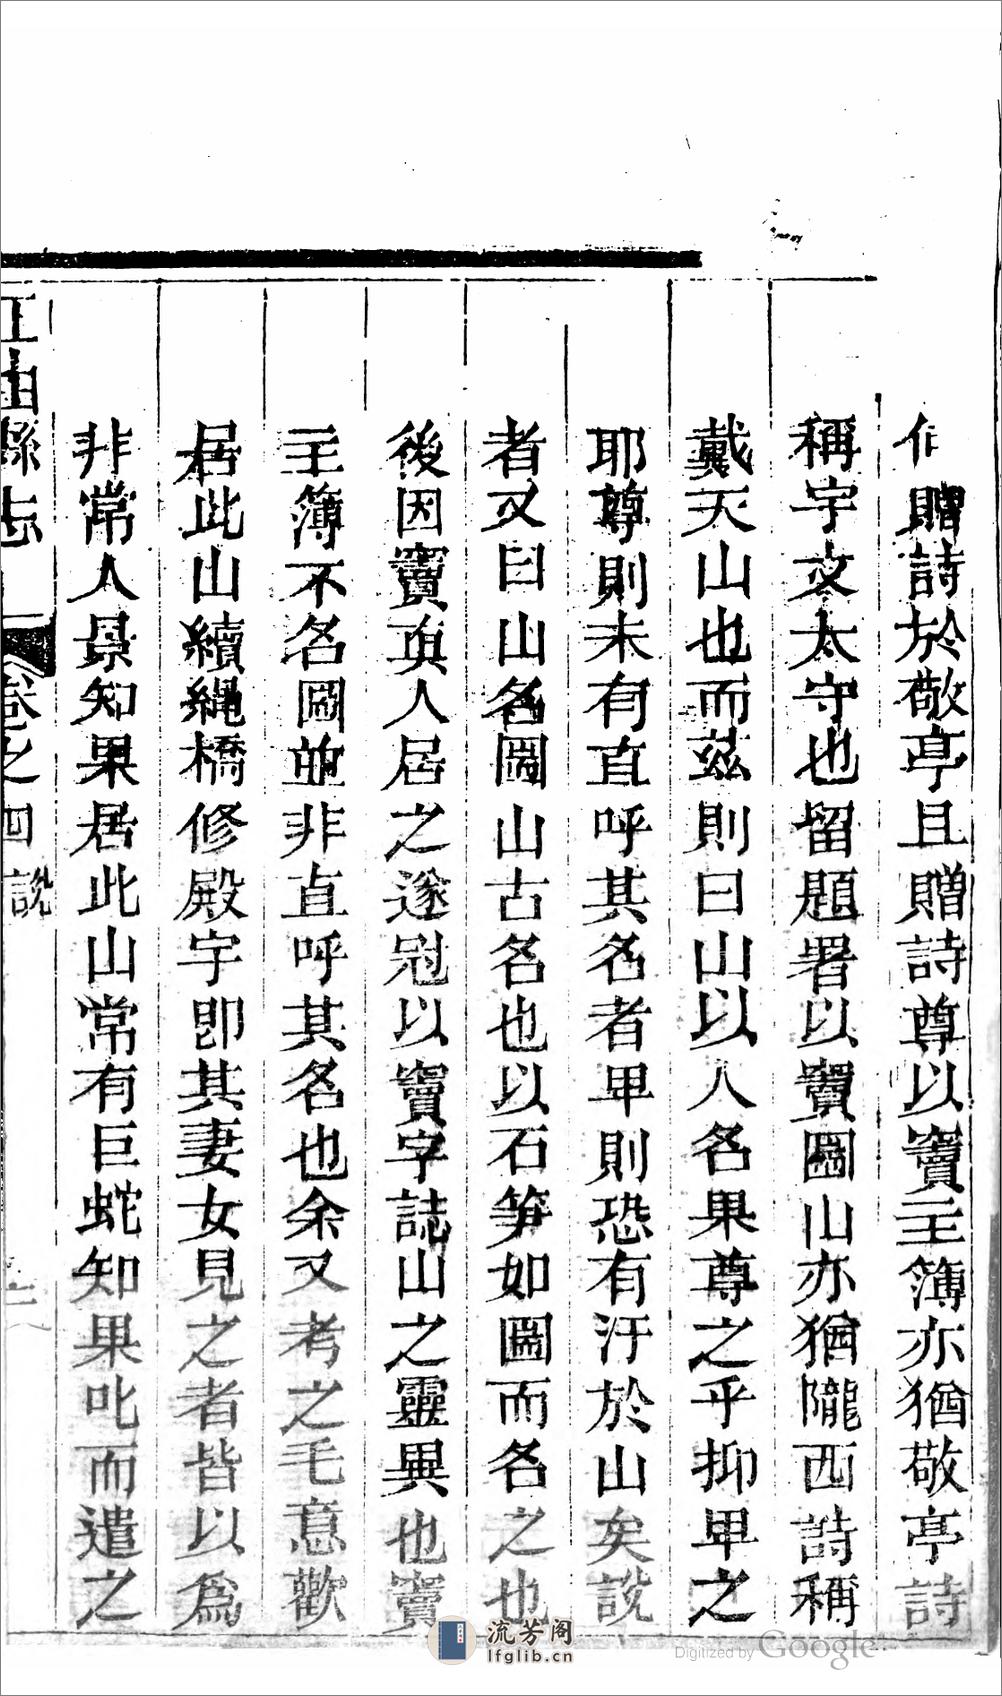 贈詩於敬亭且贈詩尊以竇主簿亦猶敬亭詩
稱宇文太守也留題署以竇圌山亦猶隴西詩稱
戴天山也而茲則曰山以人名果尊之乎抑卑之
耶尊則未有直呼其名者卑則恐有汙於山矣說
者又曰山名圌山古名也以石笋如圌而名之也
後因竇眞人居之遂冠以竇字誌山之靈異也竇
主簿不名圌並非直呼其名也余又考之毛意歡
居此山續繩橋修殿宇卽其妻女見之者皆以爲
非常人景知果居此山常有巨蛇知果叱而遣之
江油縣志
卷之四
說
流芳阁
lfglib.cn
Digitized by Google